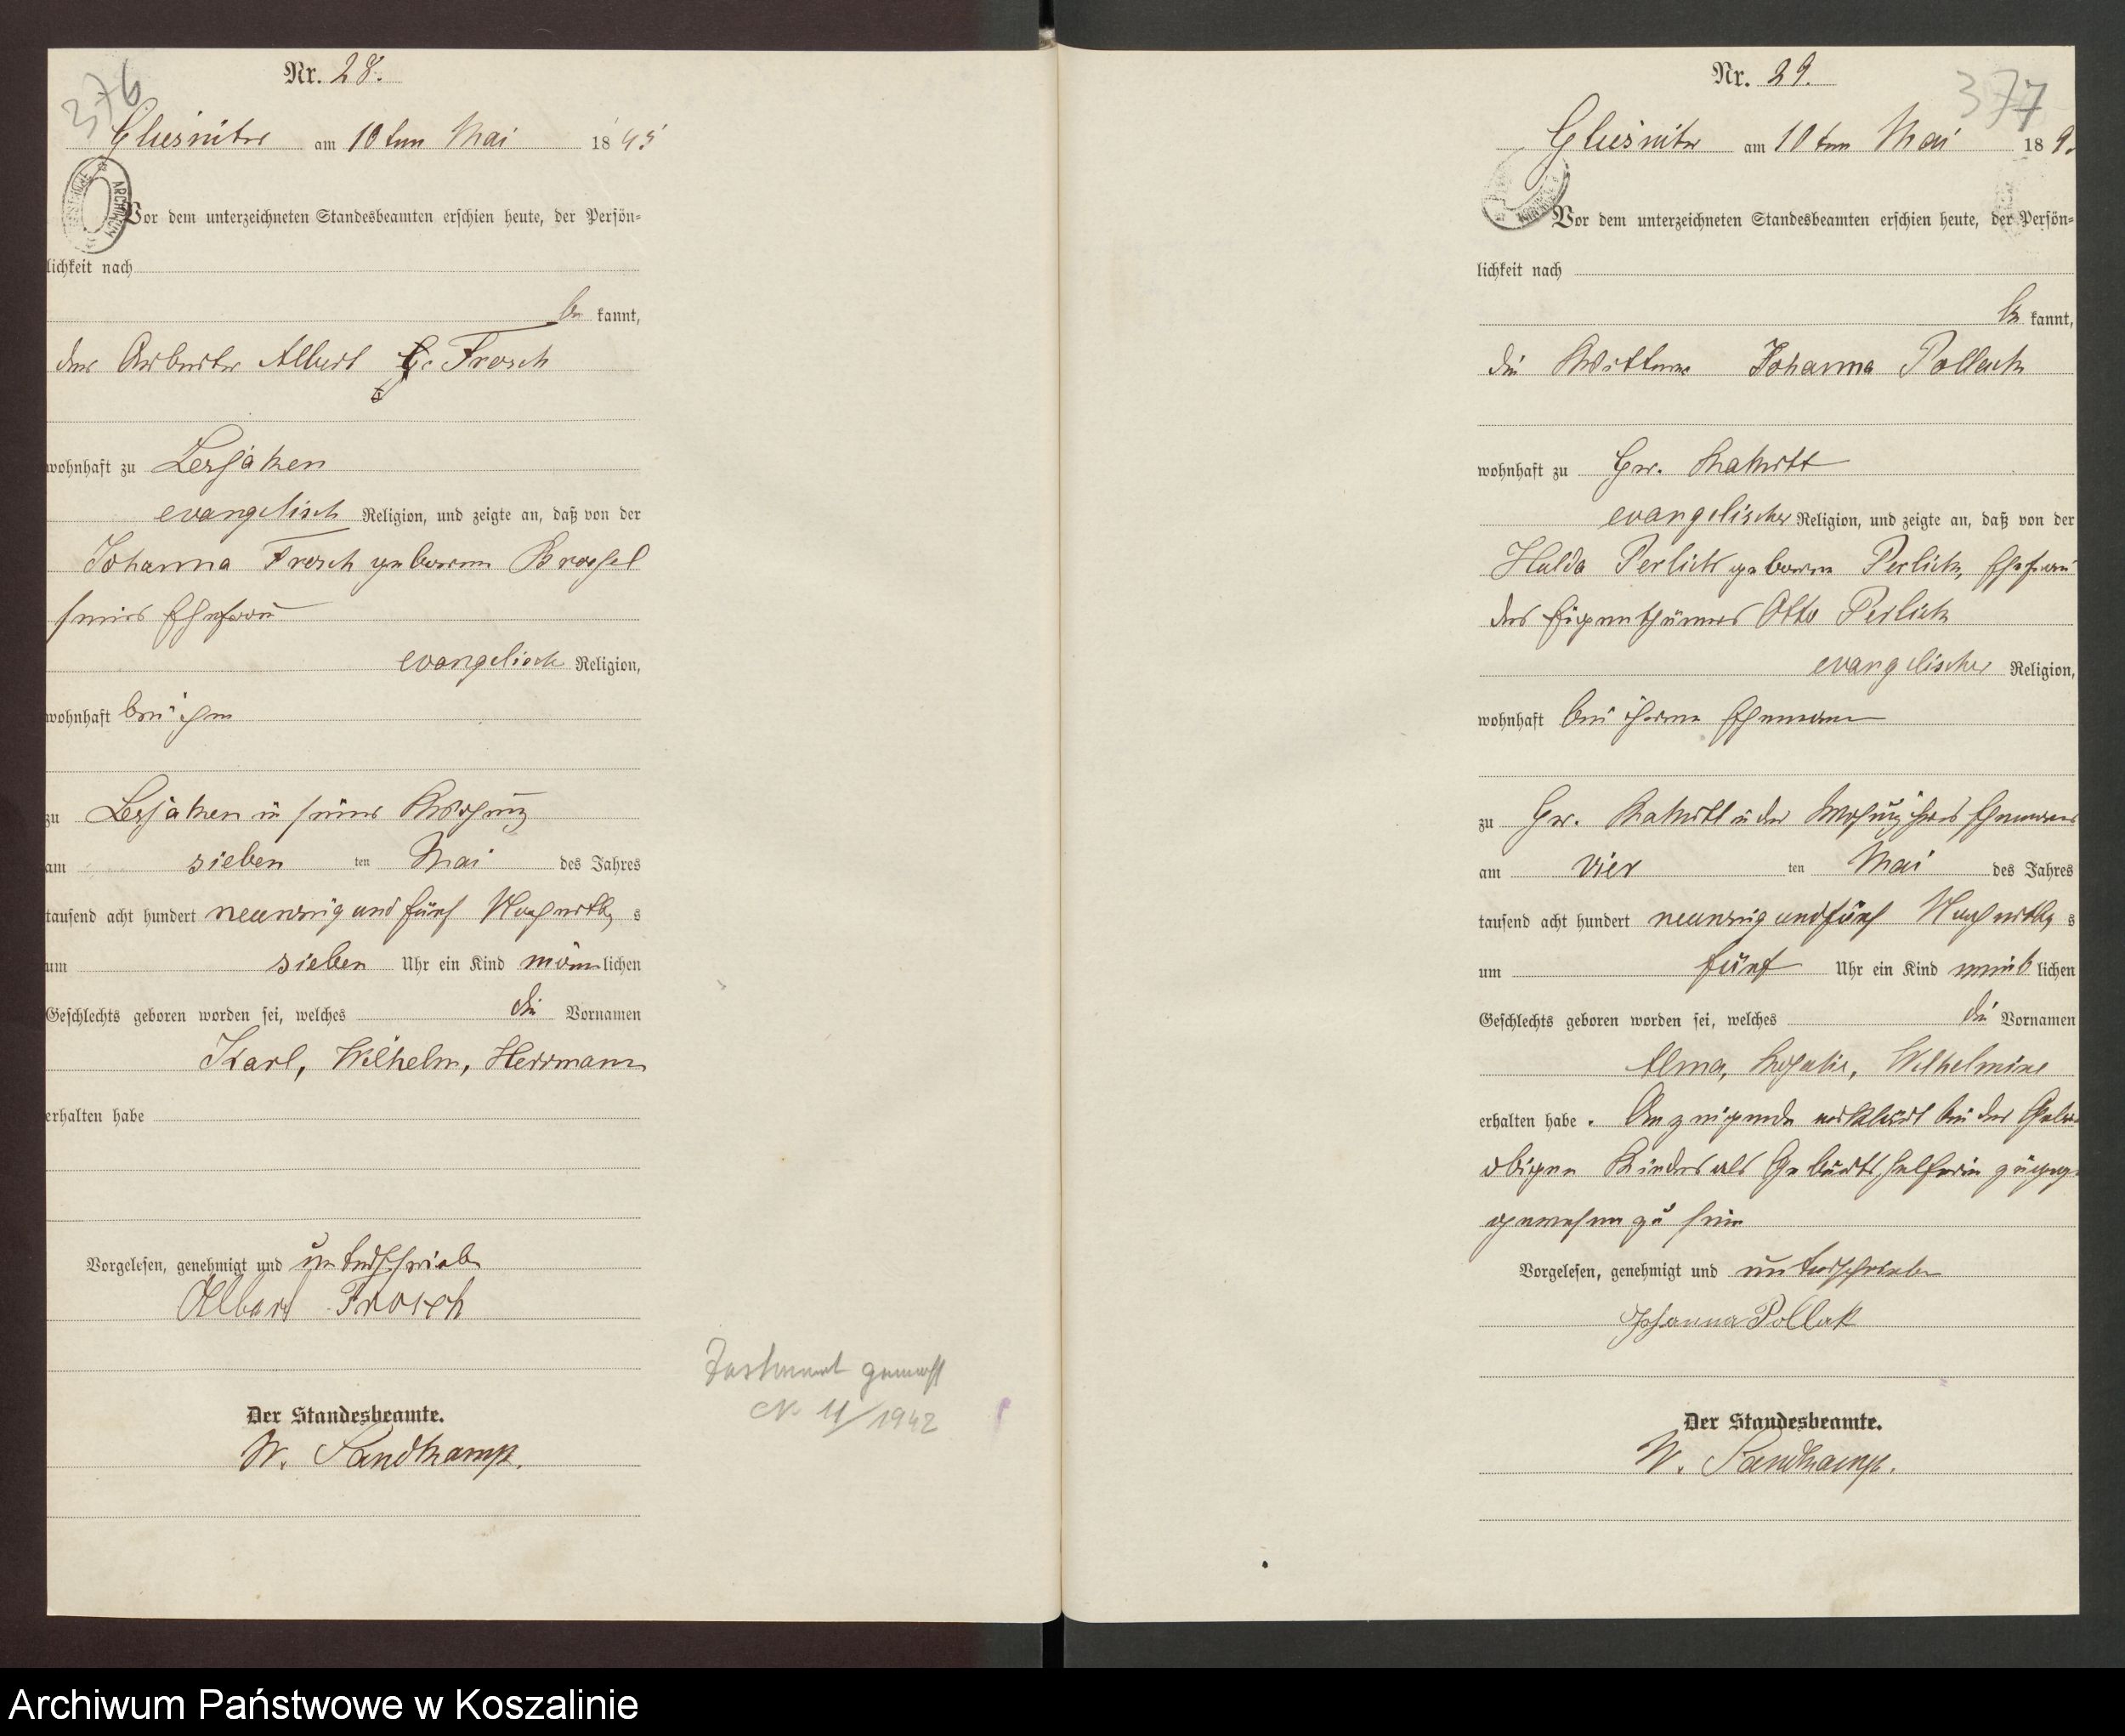 376
Nr. 28.
am 10 ten Mai 1895
Vor dem unterzeichneten Standesbeamten erschien heute, der Persön=
lichkeit nach
be kannt,
der Arbeiter Albert Frosch
wohnhaft zu Lessaken
evangelisch Religion, und zeigte an, daß von der
Johanna Frosch geborene
seiner Ehefrau
evangelisch Religion,
wohnhaft bei ihm
zu Lessaken in seiner Wohnung
am sieben ten Mai des Jahres
tausend acht hundert neunzig und fünf Nachmittag s
um sieben Uhr ein Kind männ lichen
Geschlechts geboren worden sei, welches die Vornamen
Karl, Wilhelm, Herrmann
erhalten habe
Vorgelesen, genehmigt und unterschrieben
Albert Frosch
Der Standesbeamte.
W. Sandkamp.
Testament gemacht
No 11/1942
Nr. 29.
377
am 10 ten Mai 189
Vor dem unterzeichneten Standesbeamten erschien heute, der Persön=
lichkeit nach
be kannt,
die Wittwe Johanna Pollack
wohnhaft zu Gr. Rakitt
evangelischer Religion, und zeigte an, daß von der
Hulda Perlick geborene Perlick, Ehefrau
des Eigenthümers Otto Perlick
evangelischer Religion,
wohnhaft bei ihrem Ehemann
zu Gr. Rakitt in der Wohnung ihres Ehemannes
am vier ten Mai des Jahres
tausend acht hundert neunzig und fünf Nachmittag s
um fünf Uhr ein Kind weib lichen
Geschlechts geboren worden sei, welches die Vornamen
Alma, Rosalie, Wilhelmine
erhalten habe. Anzeigende erklärt bei der
obigen Kindes als Geburtshelferin
gewesen zu sein
Vorgelesen, genehmigt und unterschrieben
Johanna Pollak
Der Standesbeamte.
W. Sandkamp.
Archiwum Państwowe w Koszalinie